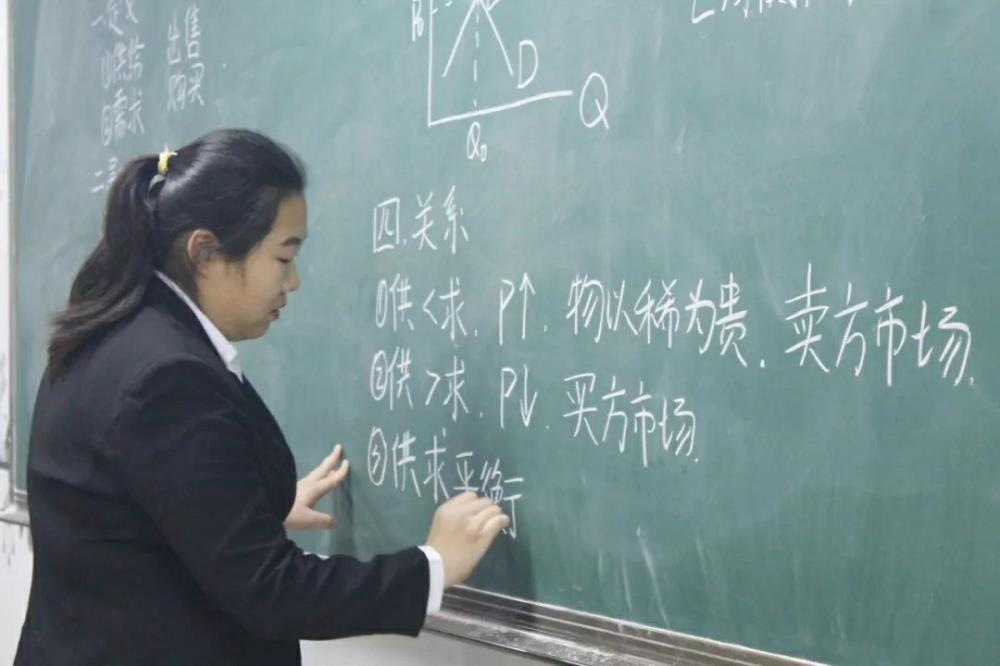 一定义
①供给 出售
②需求 购买
二
D
Q
Q₀
四.关系
①供<求. P↑. 物以稀为贵. 卖方市场.
②供>求. P↓. 买方市场.
③供求平衡